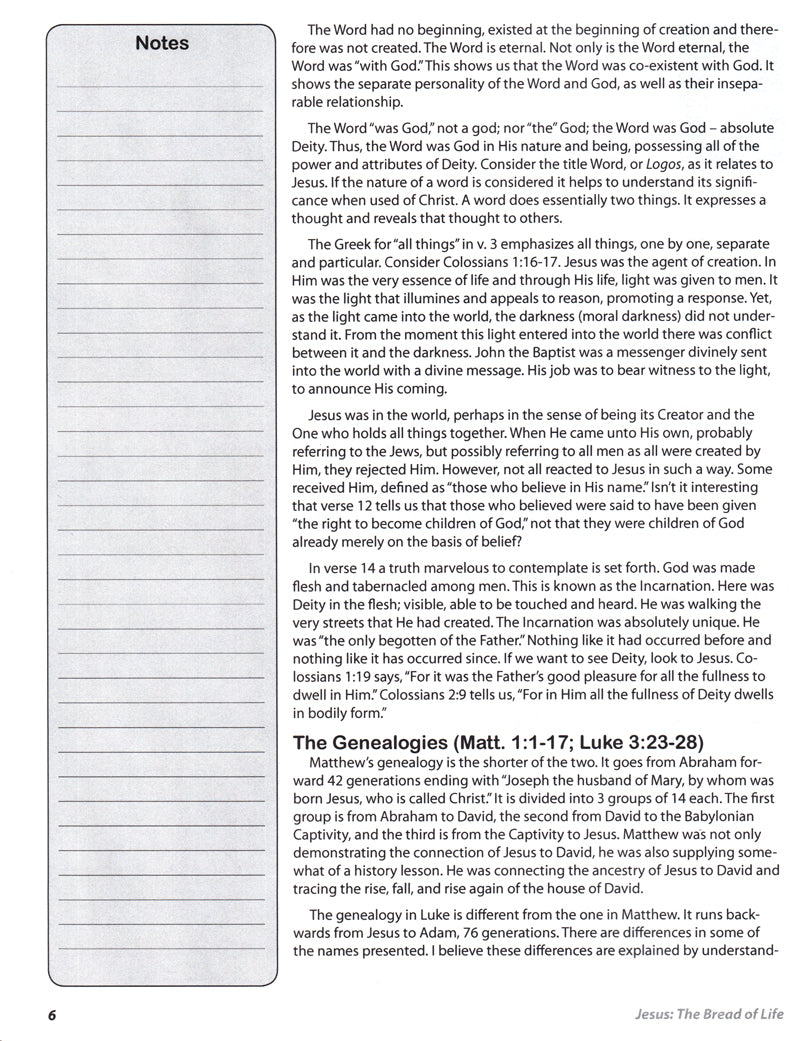 Notes
The Word had no beginning, existed at the beginning of creation and there-
fore was not created. The Word is eternal. Not only is the Word eternal, the
Word was “with God.” This shows us that the Word was co-existent with God. It
shows the separate personality of the Word and God, as well as their insepa-
rable relationship.
The Word “was God,” not a god; nor “the” God; the Word was God – absolute
Deity. Thus, the Word was God in His nature and being, possessing all of the
power and attributes of Deity. Consider the title Word, or Logos, as it relates to
Jesus. If the nature of a word is considered it helps to understand its signifi-
cance when used of Christ. A word does essentially two things. It expresses a
thought and reveals that thought to others.
The Greek for “all things” in v. 3 emphasizes all things, one by one, separate
and particular. Consider Colossians 1:16-17. Jesus was the agent of creation. In
Him was the very essence of life and through His life, light was given to men. It
was the light that illumines and appeals to reason, promoting a response. Yet,
as the light came into the world, the darkness (moral darkness) did not under-
stand it. From the moment this light entered into the world there was conflict
between it and the darkness. John the Baptist was a messenger divinely sent
into the world with a divine message. His job was to bear witness to the light,
to announce His coming.
Jesus was in the world, perhaps in the sense of being its Creator and the
One who holds all things together. When He came unto His own, probably
referring to the Jews, but possibly referring to all men as all were created by
Him, they rejected Him. However, not all reacted to Jesus in such a way. Some
received Him, defined as “those who believe in His name.” Isn’t it interesting
that verse 12 tells us that those who believed were said to have been given
“the right to become children of God,” not that they were children of God
already merely on the basis of belief?
In verse 14 a truth marvelous to contemplate is set forth. God was made
flesh and tabernacled among men. This is known as the Incarnation. Here was
Deity in the flesh; visible, able to be touched and heard. He was walking the
very streets that He had created. The Incarnation was absolutely unique. He
was “the only begotten of the Father.” Nothing like it had occurred before and
nothing like it has occurred since. If we want to see Deity, look to Jesus. Co-
lossians 1:19 says, “For it was the Father’s good pleasure for all the fullness to
dwell in Him.” Colossians 2:9 tells us, “For in Him all the fullness of Deity dwells
in bodily form.”
The Genealogies (Matt. 1:1-17; Luke 3:23-28)
Matthew’s genealogy is the shorter of the two. It goes from Abraham for-
ward 42 generations ending with “Joseph the husband of Mary, by whom was
born Jesus, who is called Christ.” It is divided into 3 groups of 14 each. The first
group is from Abraham to David, the second from David to the Babylonian
Captivity, and the third is from the Captivity to Jesus. Matthew was not only
demonstrating the connection of Jesus to David, he was also supplying some-
what of a history lesson. He was connecting the ancestry of Jesus to David and
tracing the rise, fall, and rise again of the house of David.
The genealogy in Luke is different from the one in Matthew. It runs back-
wards from Jesus to Adam, 76 generations. There are differences in some of
the names presented. I believe these differences are explained by understand-
6
Jesus: The Bread of Life